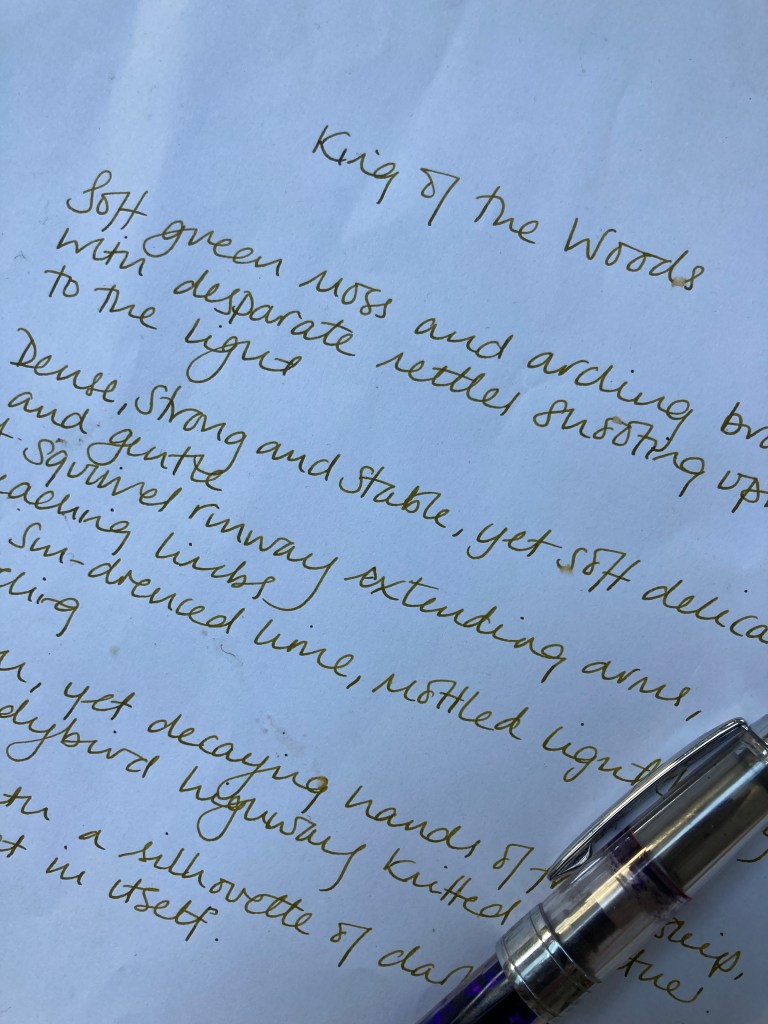 King of the Woods
Soft green moss and arching
with desparate nettles shooting up
to the light
Dense, strong and stable, yet soft delica
and gentle
squirrel runway extending arms,
limbs
sun-drenced lime, mottled light
yet decaying hands of
highway knitted ship,
a silhouette of the
in itself.